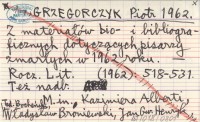 GRZEGORCZYK Piotr 1962.
Z materiałów bio- i bibliogra-
ficznych dotyczących pisarzy
zmarłych w 1962 roku.
Rocz. Lit. (1962): 518-531.
Też nadb.
M.in. Kazimiera Alberti,
Tad. Brzeziń
Władysław Broniewski, Jan